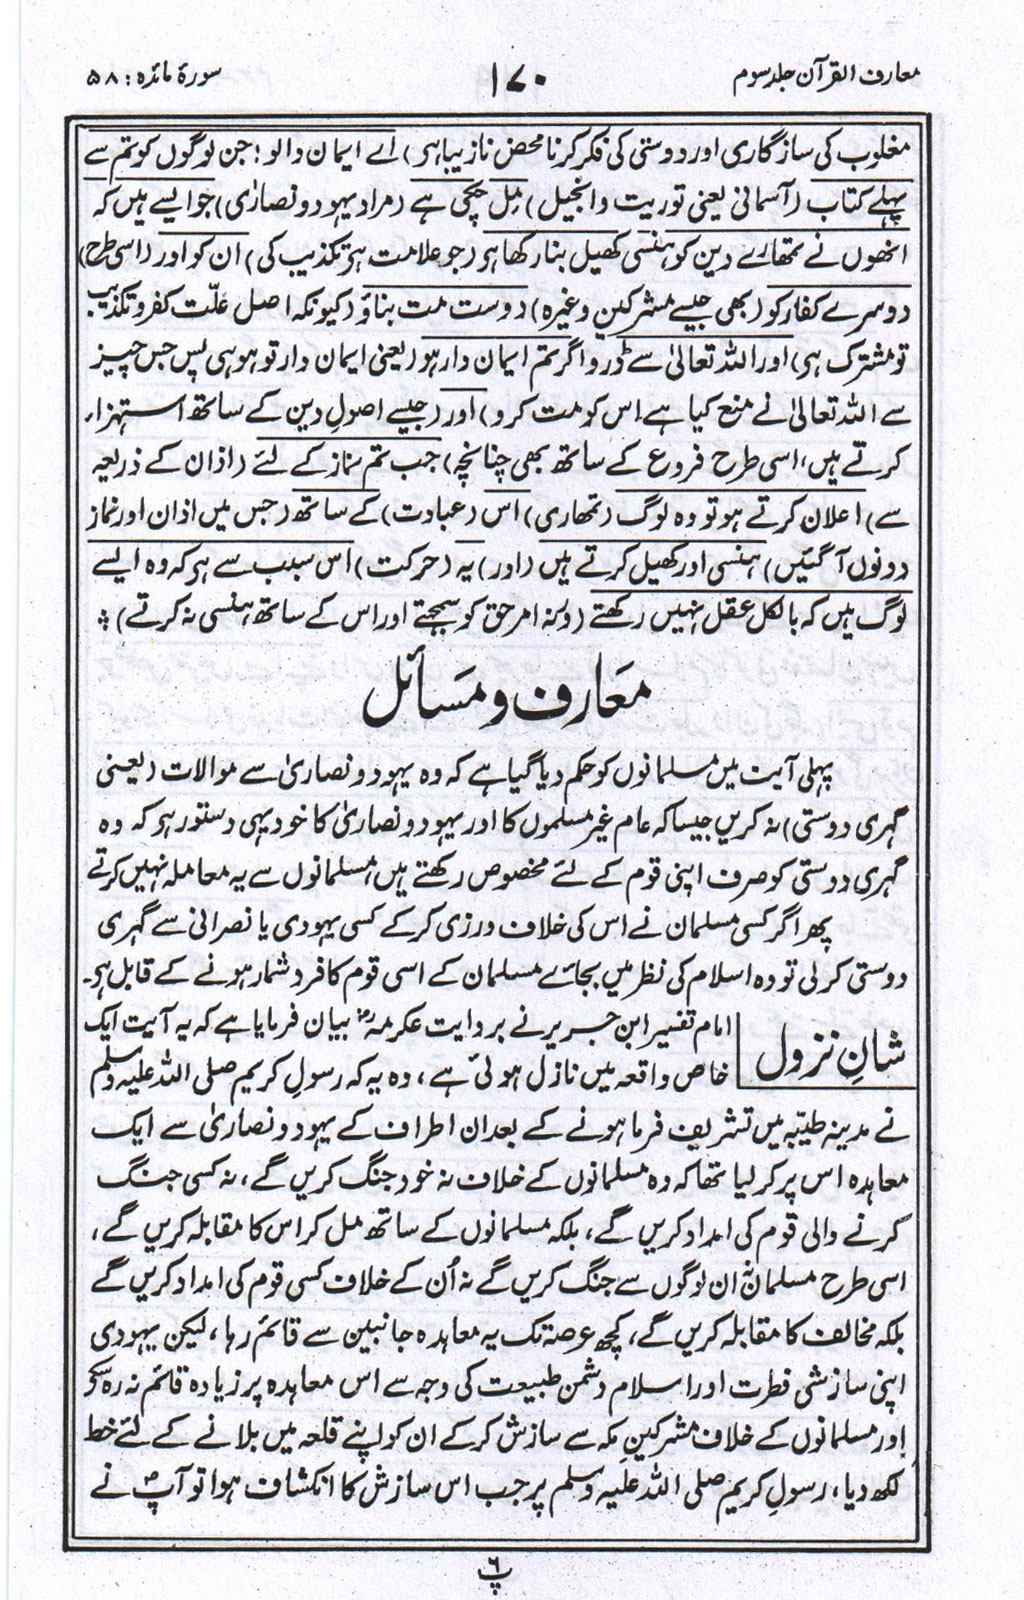 معارف القرآن جلد سوم
۱۷۰
سورۂ مائدہ : ۵۸
مغلوب کی سازگاری اور دوستی کی فکر کرنا محض نازیبا ہی) اے ایمان والو! جن لوگوں کو تم سے
پہلے کتاب (آسمانی یعنی توریت و انجیل) مل چکی ہے (مراد یہود و نصاریٰ) جو ایسے ہیں کہ
انھوں نے تمھارے دین کو ہنسی کھیل بنا رکھا ہو (جو علامت ہو تکذیب کی) ان کو اور (اسی طرح)
دوسرے کفار کو (بھی جیسے مشرکین وغیرہ) دوست مت بناؤ (کیونکہ اصل علّت کفر و تکذیب
تو مشترک ہی) اور اللہ تعالیٰ سے ڈرو اگر تم ایمان دار ہو (یعنی ایمان دار تو ہو ہی پس جس چیز
سے اللہ تعالیٰ نے منع کیا ہے اس کو مت کرو) اور (جیسے اصولِ دین کے ساتھ استہزاء
کرتے ہیں، اسی طرح فروع کے ساتھ بھی چنانچہ) جب تم نماز کے لئے (اذان کے ذریعہ
سے) اعلان کرتے ہو تو وہ لوگ (تمھاری) اس (عبادت) کے ساتھ (جس میں اذان اور نماز
دونوں آگئیں) ہنسی اور کھیل کرتے ہیں (اور) یہ (حرکت) اس سبب سے ہو کہ وہ ایسے
لوگ ہیں کہ بالکل عقل نہیں رکھتے (ورنہ امرِ حق کو سمجھتے اور اس کے ساتھ ہنسی نہ کرتے) ؛
معارف و مسائل
پہلی آیت میں مسلمانوں کو حکم دیا گیا ہے کہ وہ یہود و نصاریٰ سے موالات (یعنی
گہری دوستی) نہ کریں جیسا کہ عام غیر مسلموں کا اور یہود و نصاریٰ کا خود یہی دستور ہو کہ وہ
گہری دوستی کو صرف اپنی قوم کے لئے مخصوص رکھتے ہیں، مسلمانوں سے یہ معاملہ نہیں کرتے
پھر اگر کسی مسلمان نے اس کی خلاف ورزی کرکے کسی یہودی یا نصرانی سے گہری
دوستی کر لی تو وہ اسلام کی نظر میں بجائے مسلمان کے اسی قوم کا فرد شمار ہونے کے قابل ہو۔
شانِ نزول
امام تفسیر ابن جریر نے بروایت عکرمہؓ بیان فرمایا ہے کہ یہ آیت ایک
خاص واقعہ میں نازل ہوئی ہے، وہ یہ کہ رسولِ کریم صلی اللہ علیہ وسلم
نے مدینہ طیّبہ میں تشریف فرما ہونے کے بعد ان اطراف کے یہود و نصاریٰ سے ایک
معاہدہ اس پر کر لیا تھا کہ وہ مسلمانوں کے خلاف نہ خود جنگ کریں گے، نہ کسی جنگ
کرنے والی قوم کی امداد کریں گے، بلکہ مسلمانوں کے ساتھ مل کر اس کا مقابلہ کریں گے،
اسی طرح مسلمان نہ ان لوگوں سے جنگ کریں گے نہ اُن کے خلاف کسی قوم کی امداد کریں گے
بلکہ مخالف کا مقابلہ کریں گے، کچھ عرصہ تک یہ معاہدہ جانبین سے قائم رہا، لیکن یہودی
اپنی سازشی فطرت اور اسلام دشمن طبیعت کی وجہ سے اس معاہدہ پر زیادہ قائم نہ رہ سکے
اور مسلمانوں کے خلاف مشرکینِ مکہ سے سازش کرکے ان کو اپنے قلعہ میں بلانے کے لئے خط
لکھ دیا، رسولِ کریم صلی اللہ علیہ وسلم پر جب اس سازش کا انکشاف ہوا تو آپؐ نے